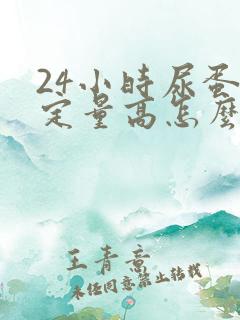 24小时尿蛋
定量高怎麽
王青意
未经同意禁止转载